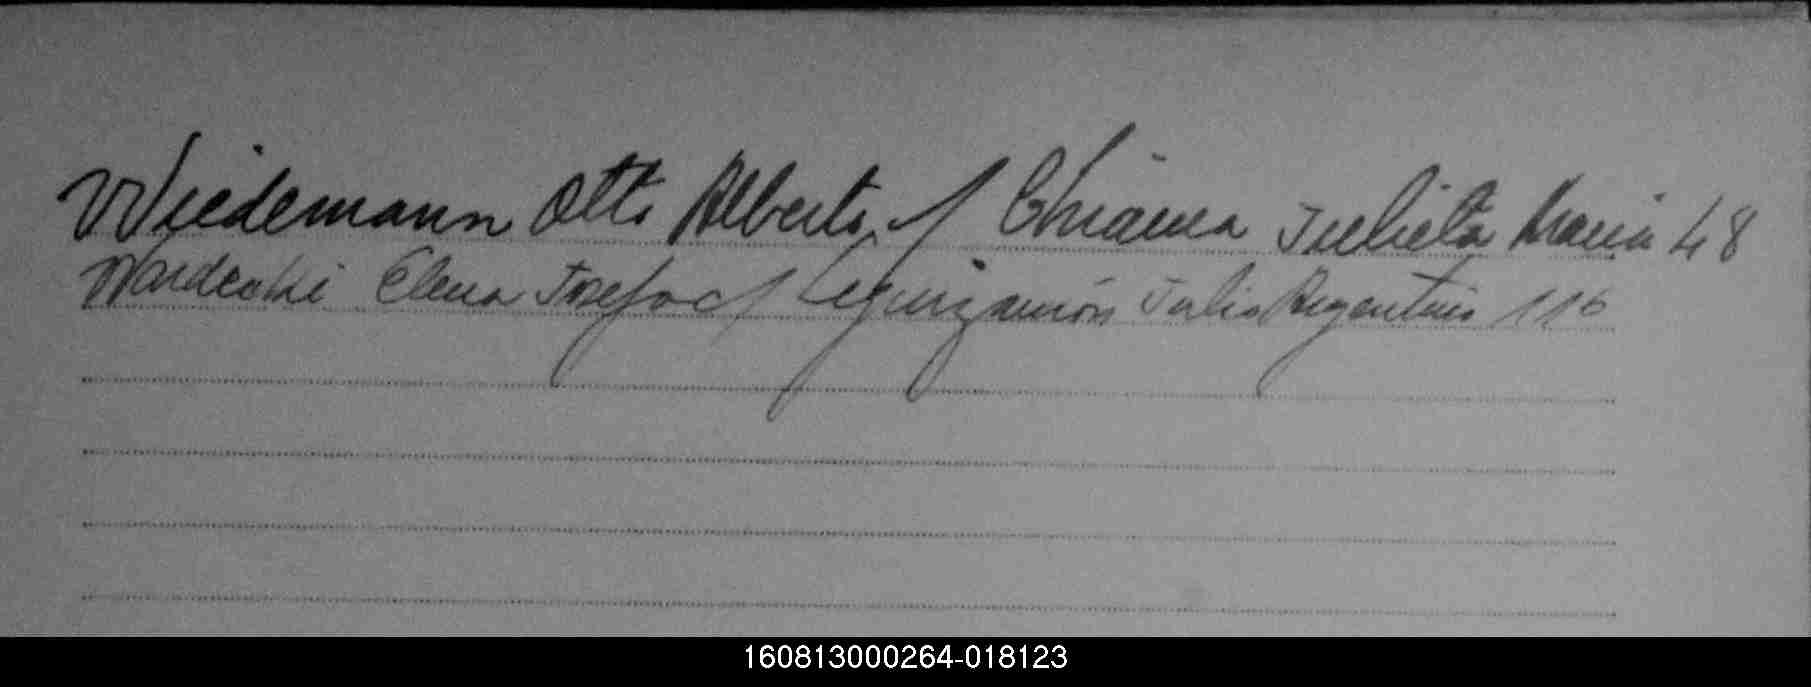 Wiedemann Otto Alberto c/ Julieta Maria 48
Elena Josefa c/ Leguizamón Julio Argentino 116
160813000264-018123